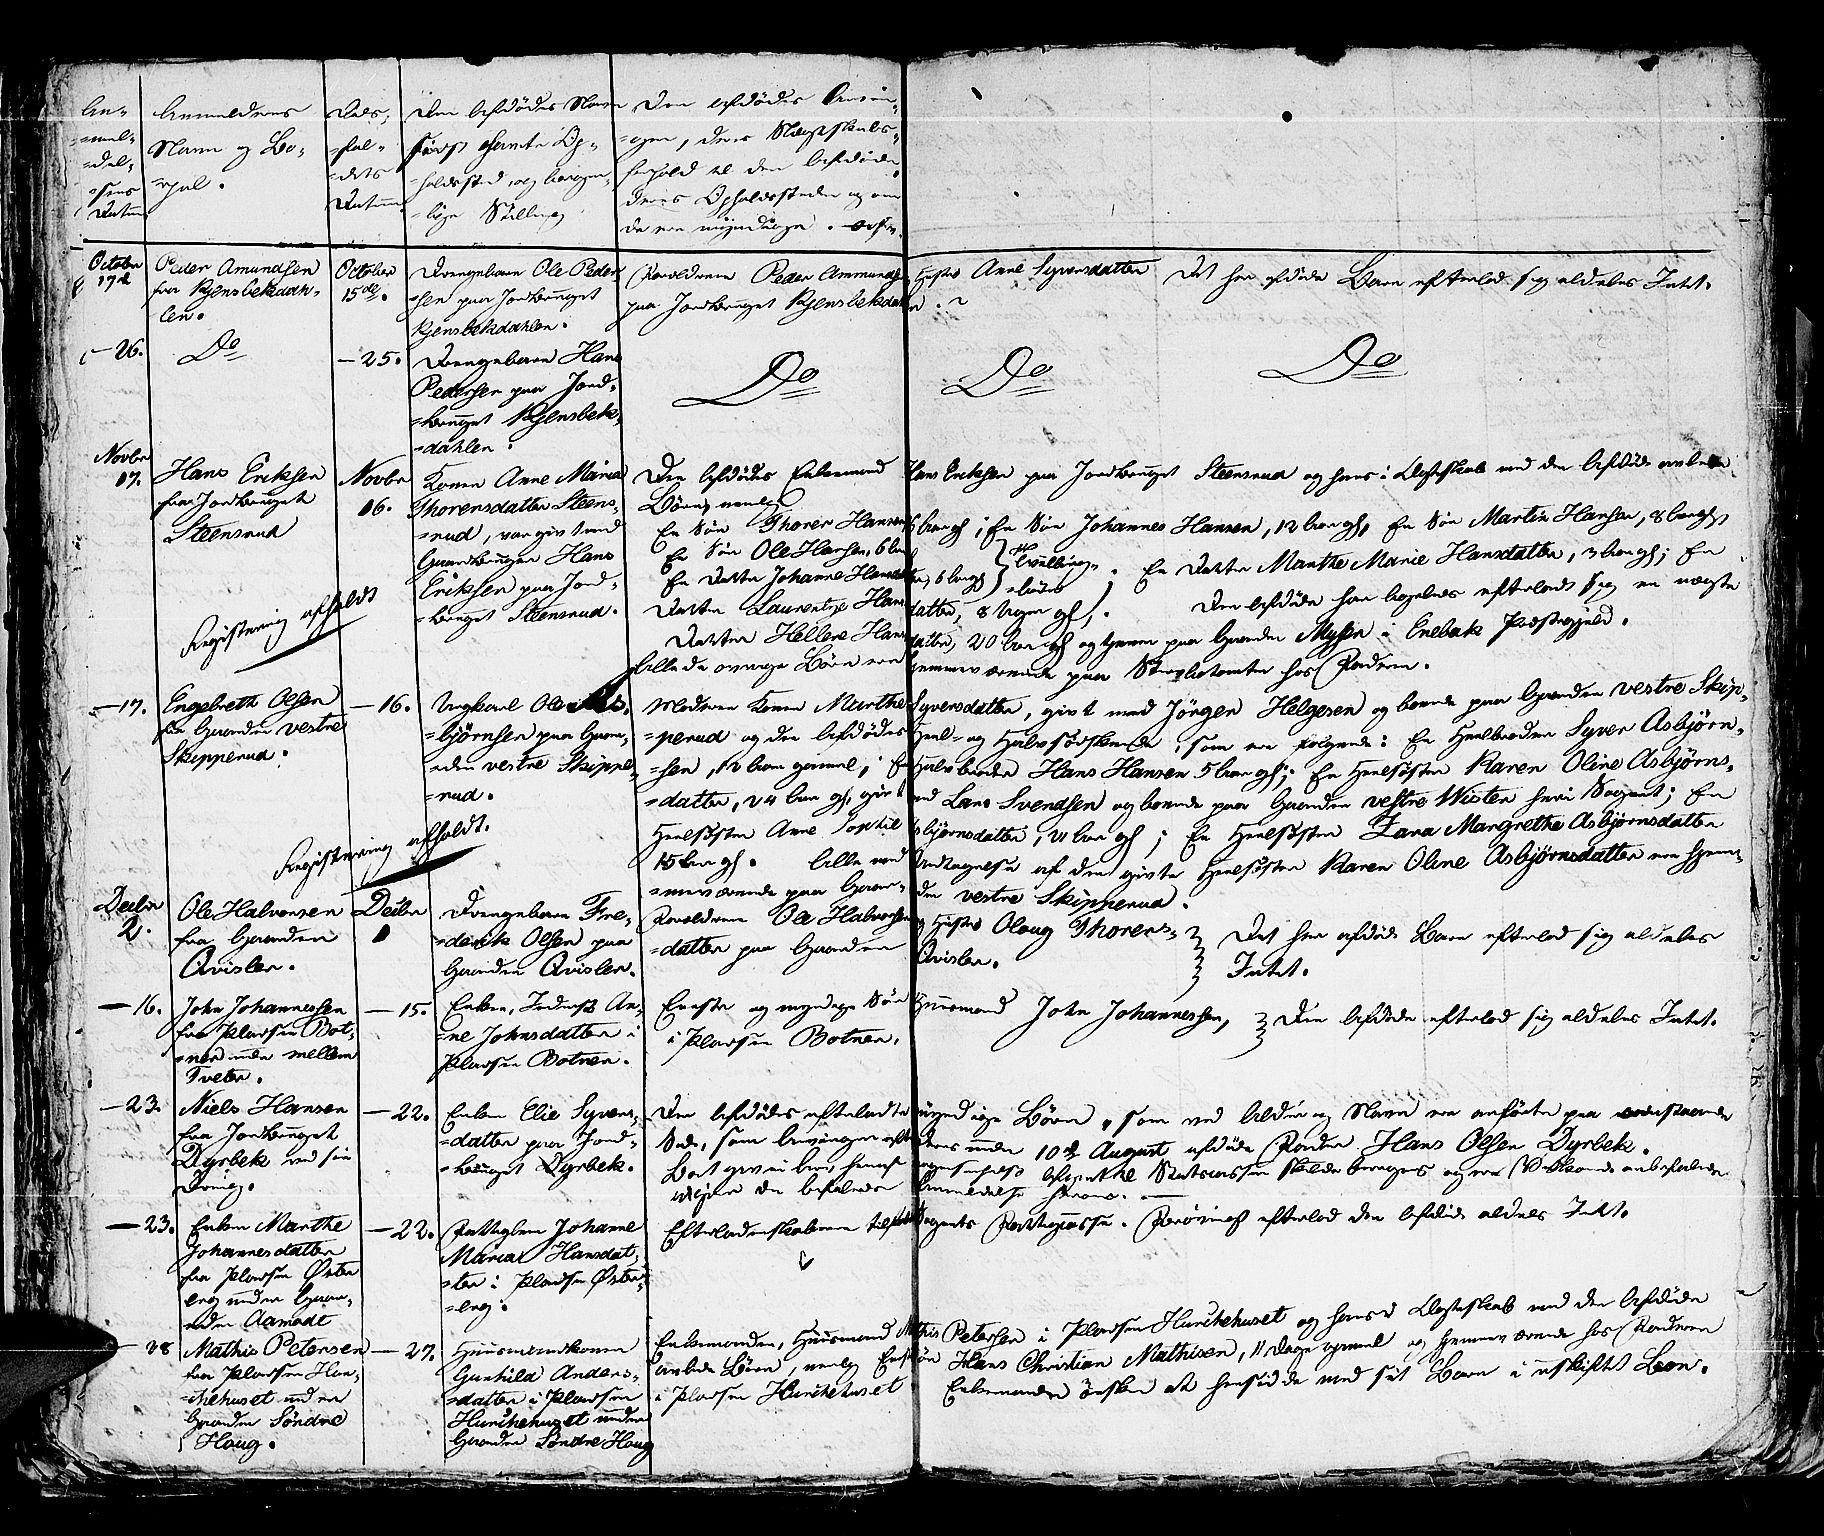 An-
=mel-
=del-
=sens
Datum
Anmelderens
Navn og Bo-
=pæl.
Døds-
=fal-
=dets
Datum
Den Afdødes Navn
samt Op-
=holdssted, og borger-
=lige Stilling
Den Afdødes Arvin-
=ger, deres Slægtskabs-
forhold til den Afdøde
deres Opholdssteder og om
de ere myndige.
October
17de
Peder Amundsen
fra Kjensbekdah-
len.
October
15de.
Drengebarn Ole Peder-
=sen paa Jordbruget
Kjensbekdahlen.
Forældrene Peder Ammundsen
paa Jordbruget Kjensbekdalen
Hustro Anne Syversdatter
Det her afdøde Barn efterlod sig aldeles Intet.
— 26.
Do
— 25.
Drengebarn Hans
Pedersen paa Jord-
=bruget Kjensbek-
=dahlen.
Do
Do
Do
Novbr
17.
Hans Eriksen
fra Jordbruget
Steensrud
Novbr
16.
Konen Anne Maria
Thorensdatter Steens-
=rud, var givt med
Gaardbruger Hans
Eriksen paa Jord-
=bruget Steensrud.
Registrering afholdt
Den Afdødes Enkemand Hans Eriksen paa Jordbruget Steensrud og hans i Ægteskab med den Afdøde avlede
Børn, nemlig
En Søn Thorer Hansen, En Søn Johannes Hansen, 12 Aar gl, En Søn Martin Hansen, 8 Aar gl
En Søn Ole Hansen, 6 Aar
En Datter Johanne Hansdatter, 6 Aar gl } Tvillinge-
=sødskende
. En Datter Marthe Marie Hansdatter, 3 Aar gl; En
Datter Laurentze Hansdatter, 8 Uger gl,. Den Afdøde har ligeledes efterladt sig en uægte
Datter Hellene Hansdatter, 20 Aar gl og tjener paa Gaarden Mysen i Enebak Præstegjeld.
Alle de øvrige Børn ere hjemmeværende paa hos Faderen.
— 17.
Engebreth Olsen
fra Gaarden vestre
Skipperud.
— 16.
Ungkarl Ole As-
=bjørnsen paa Gaar-
=den vestre Skippe-
=rud.
Registrering afholdt.
Moderen Konen Marthe Syversdatter, givt med Jörgen Helgesen og boende paa Gaarden vestre Skip-
=perud og den Afdødes Heel- og Halvsødskende, som ere følgende: En Heelbroder Syver Asbjörn-
=sen, 12 Aar gammel; En Halvbroder Hans Hansen 5 Aar gl; En Heelsøster Karen Oline Asbjörns-
=datter, 24 Aar gl, givt med Lars Svendsen og boende paa Gaarden vestre Wister her i Sognet; En
Heelsøster Anne Sophie Asbjörnsdatter, 21 Aar gl; En Heelsøster Zara Margrethe Asbjörnsdatter
15 Aar gl. Alle med Undtagelse af den givte Heelsøster Karen Oline Asbjörnsdatter ere hjem-
=meværende paa Gaar-
den vestre Skipperud.
Decbr
2.
Ole Halvorsen
fra Gaarden
Qvisler.
Decbr
1
Drengebarn Fre-
=derik Olsen paa
Gaarden Qvisler.
Forældrene Ole Halvorsen og Hustro Oloug Thorer-
=datter paa Gaarden Qvisler.
Det her afdøde Barn efterlod sig aldeles
Intet.
— 16.
John Johannessen
fra Pladsen Bot-
=ner under mellem
Tveter.
— 15.
Enken, Inderst An-
=ne Johnsdatter i
Pladsen Botner.
Eneste og myndige Søn Huusmand John Johannessen,
i Pladsen Botner.
Den Afdøde efterlod sig aldeles Intet.
— 23.
Niels Hansen
fra Jordbruget
Dyrbek
— 22.
Enken Elie Syvers-
datter paa Jord-
=bruget Dyrbek.
Den Afdødes efterladte myndige Børn, som ved Alder og Navn ere anførte paa
under 10de August afdøde Fader Hans Olsen Dyrbek.
— 23.
Enken Marthe
Johannesdatter
fra Pladsen Øster
eng under Gaar-
=den Aamodt
— 22.
Fattiglem Johanne
Maria Hansdat-
=ter i Pladsen Øster
=eng.
Efterladenskaberne Sognets Fattigcasse. Forøvrigt efterlod den Afdøde aldeles Intet.
— 28
Mathis Petersen
fra Pladsen Hun-
=chehuset under
Gaarden Söndre
Haug.
— 27.
Huusmandkonen
Gunhild Anders-
=datter i Pladsen
Hunchehuset under
Gaarden Söndre Haug
Enkemanden, Huusmand Mathis Petersen i Pladsen Hunchehuset og hans i Ægteskab med den Afdøde
avlede Børn, nemlig En Søn Hans Christian Mathisen, 11 Dage gammel og hjemmeværende hos Faderen
i Pladsen Hunchehuset
Enkemanden ønsker at hensidde med sit Barn i uskiftet Boe.